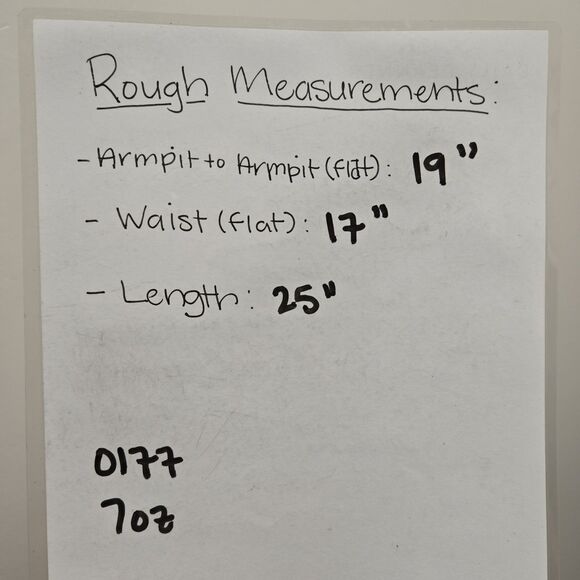 Rough Measurements:
- Armpit to Armpit (flat): 19"
- Waist (flat): 17"
- Length: 25"
0177
7oz